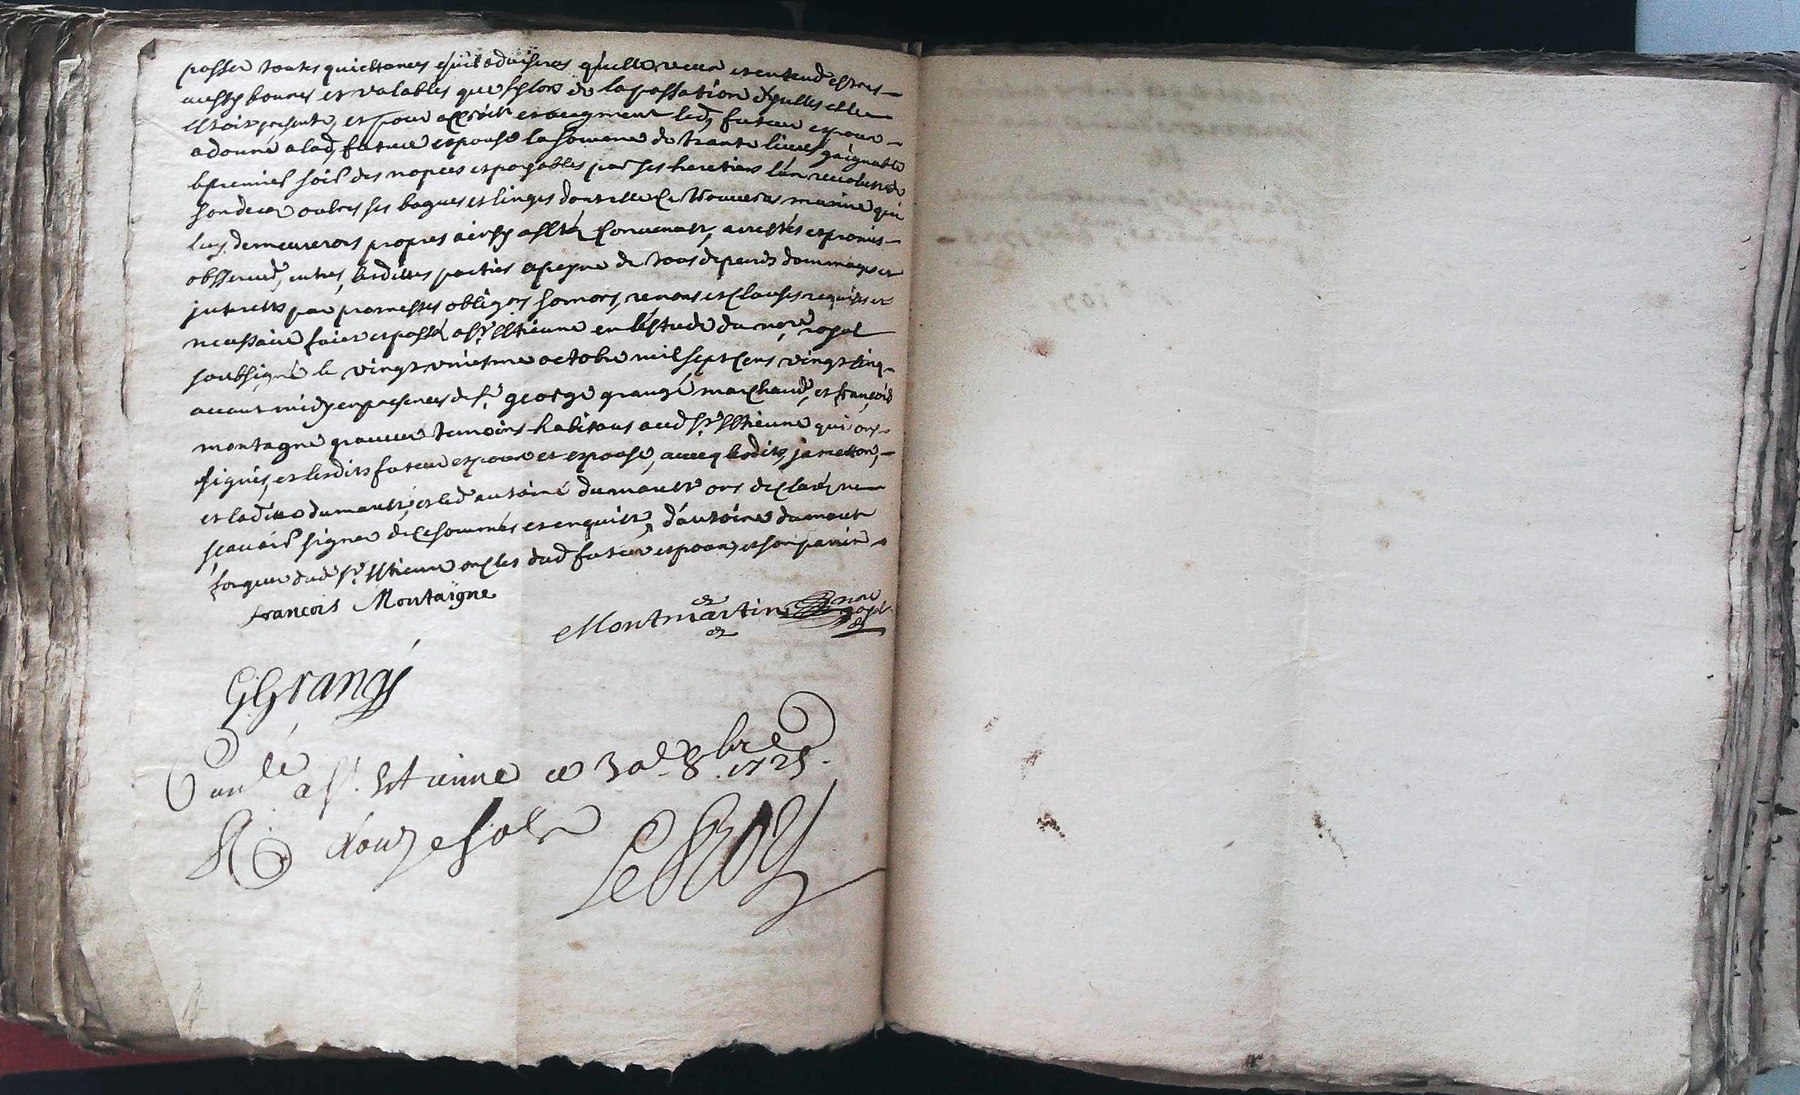 passer toutes quictances qu'il advisera qu'elle veux et entend estres
aussy bonnes et valables que sy lors de la passation d'yselles elle
estoit presente, et pour accroit et augment led futeur espoux
a donné a lad future espouse la somme de trante livres gaignable
le premier soir des nopces et payables par ses heretiers l'an revolu de
son deces outres ses bagues et linges dont elle se trouveras munie qui
luy demeureront propres ainsy a esté convenus, arrestés et promis
observer, entres lesdittes parties a peyne de tous depends dommages et
interets par promesses obligons somons, renons et clauses requises et
necessaire faict et passé a st Estienne en l'estude du nore royal
soubsigné le vingt uniesme octobre mil sept cens vingt cinq
avant midy en presences de sr george grangé marchand, et françois
montagne graveur temoins habitans aud st Estienne qui ont
signés, et lesdits futeur espoux et espouse, avecq lesdits jametton,
et laditte dumault, et led antoine dumault ont declarés ne
sçavoir signer de ce sommés et enquist, d'antoine dumault
forgeur dud st Estienne oncles dud futeur espoux et son parrin
francois Montaigne
Montmartin nore royal
G Grangé
Conlé a st. Estienne ce 30e 8bre 1725.
R douze sols
Le Roy